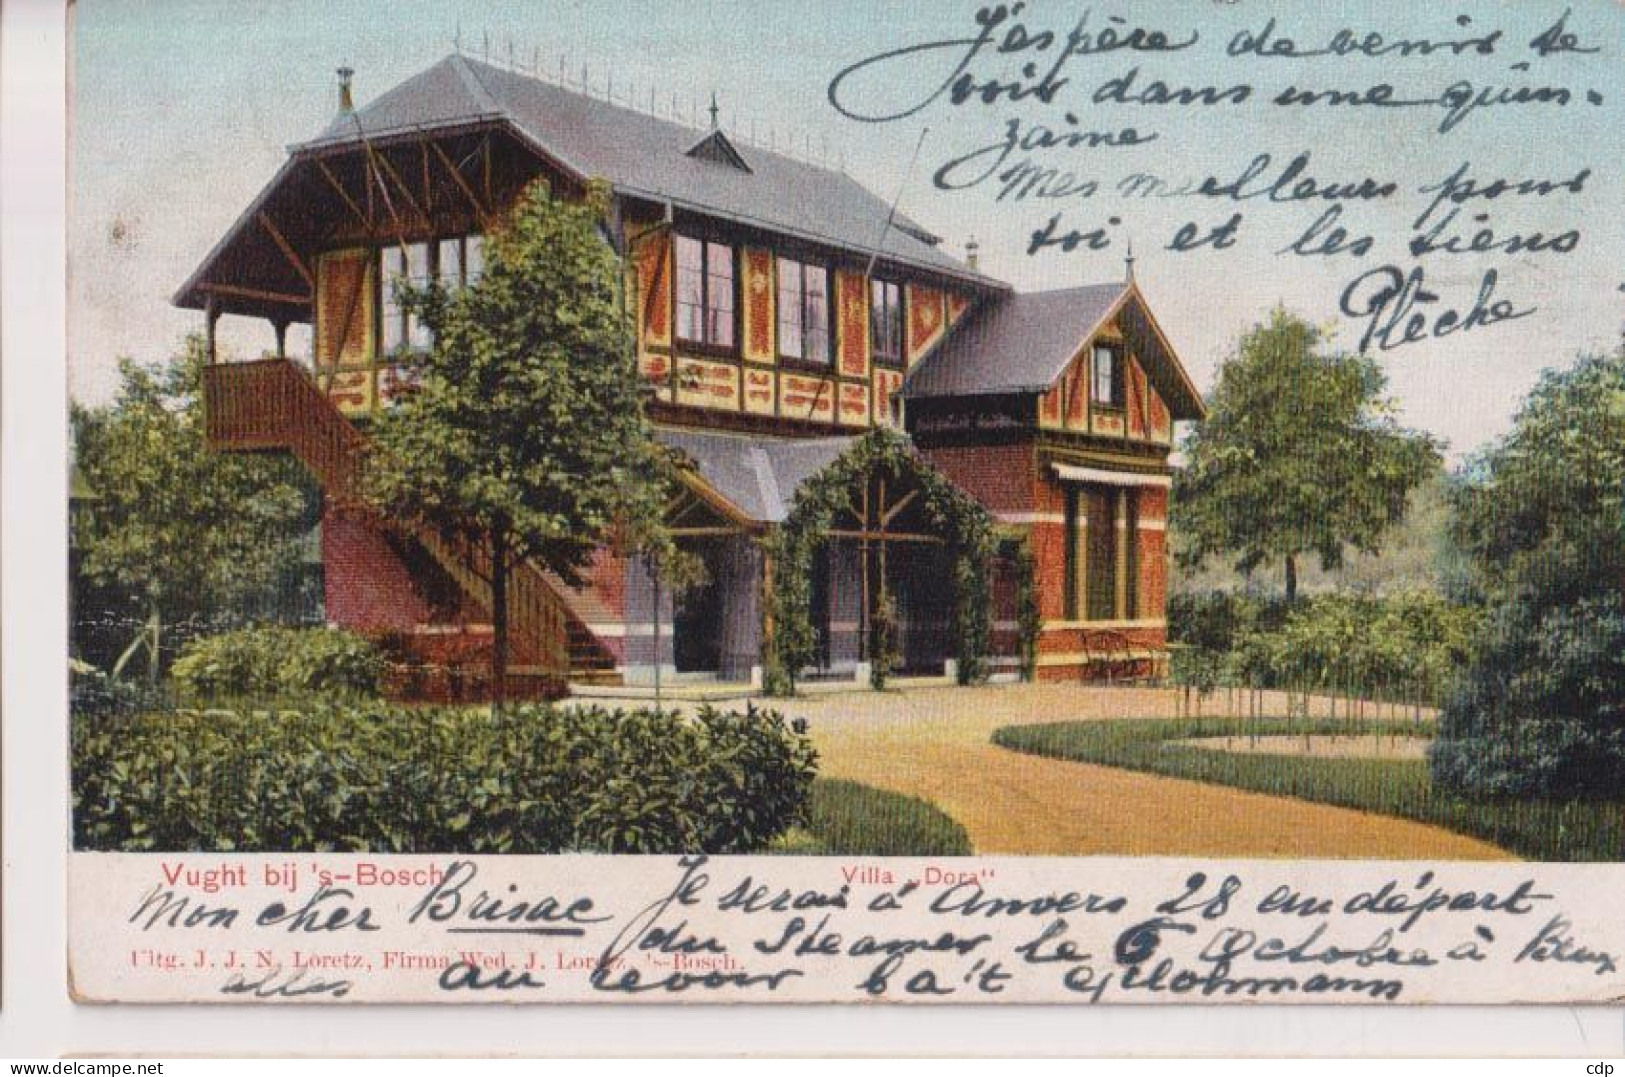 J'espère de venir te
voir dans une quin-
zaine
Mes meilleurs pour
toi et les tiens
Plèche
Vught bij 's-Bosch
Villa „Dora"
Mon cher Brisac Je serai à Anvers 28 au départ
Uitg. J. J. N. Loretz, Firma Wed. J. Loretz, 's-Bosch.
du Steamer le 6 Octobre à
au revoir
delcampe.net
cdp